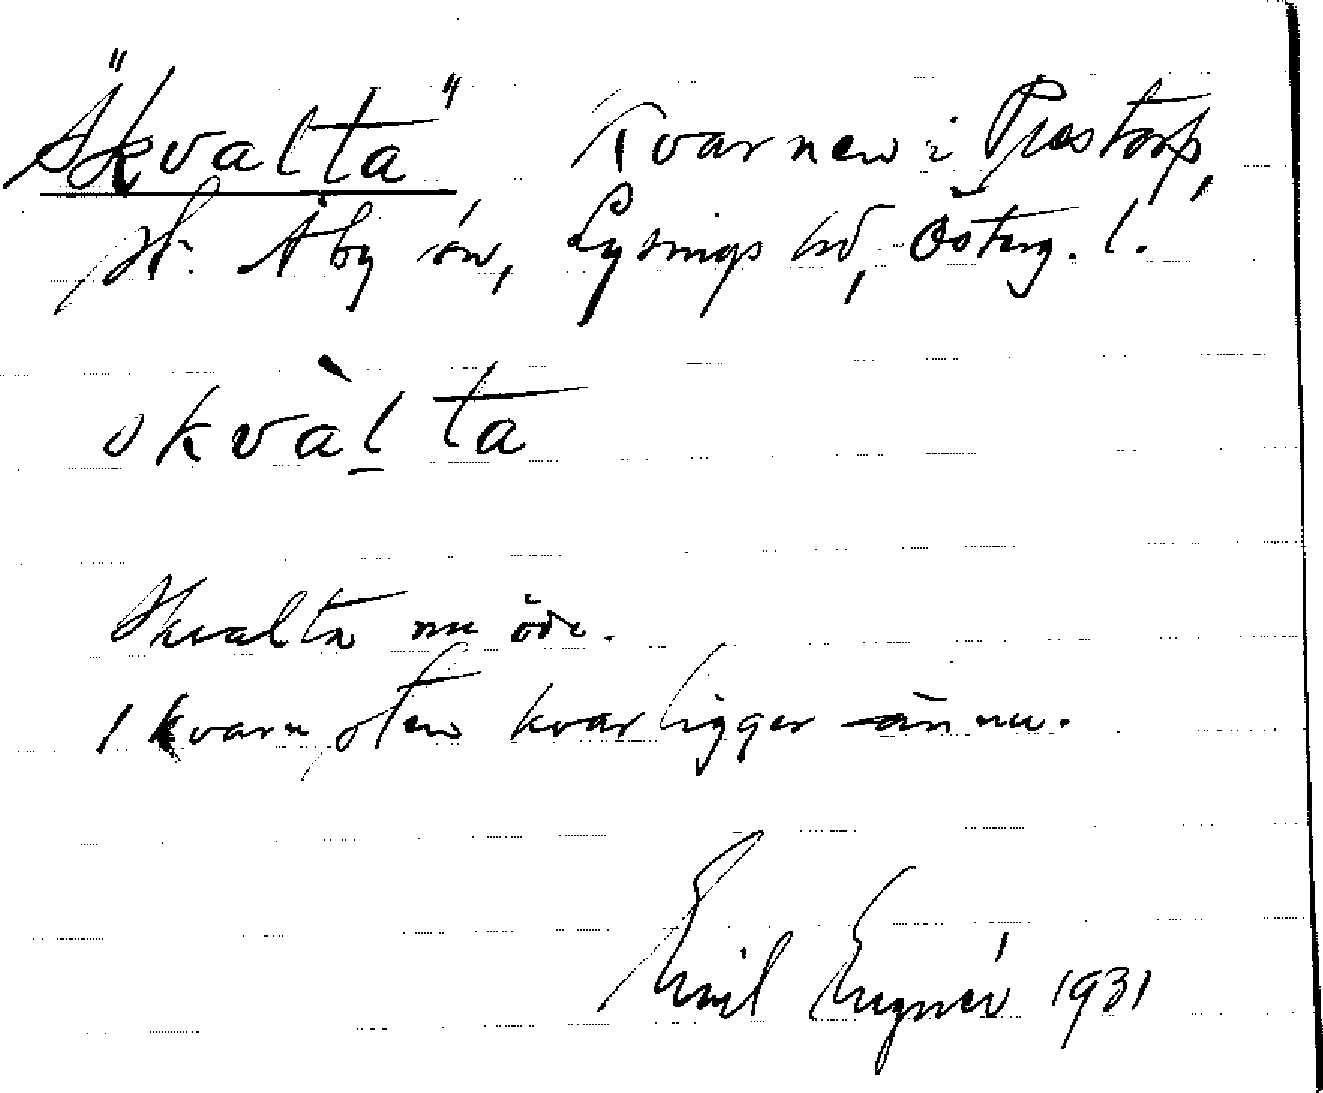 "Skvalta" Kvarnen i Prestorp,
St. Åby sn, Lysings hd, Österg. l.
skvàl̠ta
Skvalta nu öde.
1 kvarnsten kvarligger ännu.
Emil 1931